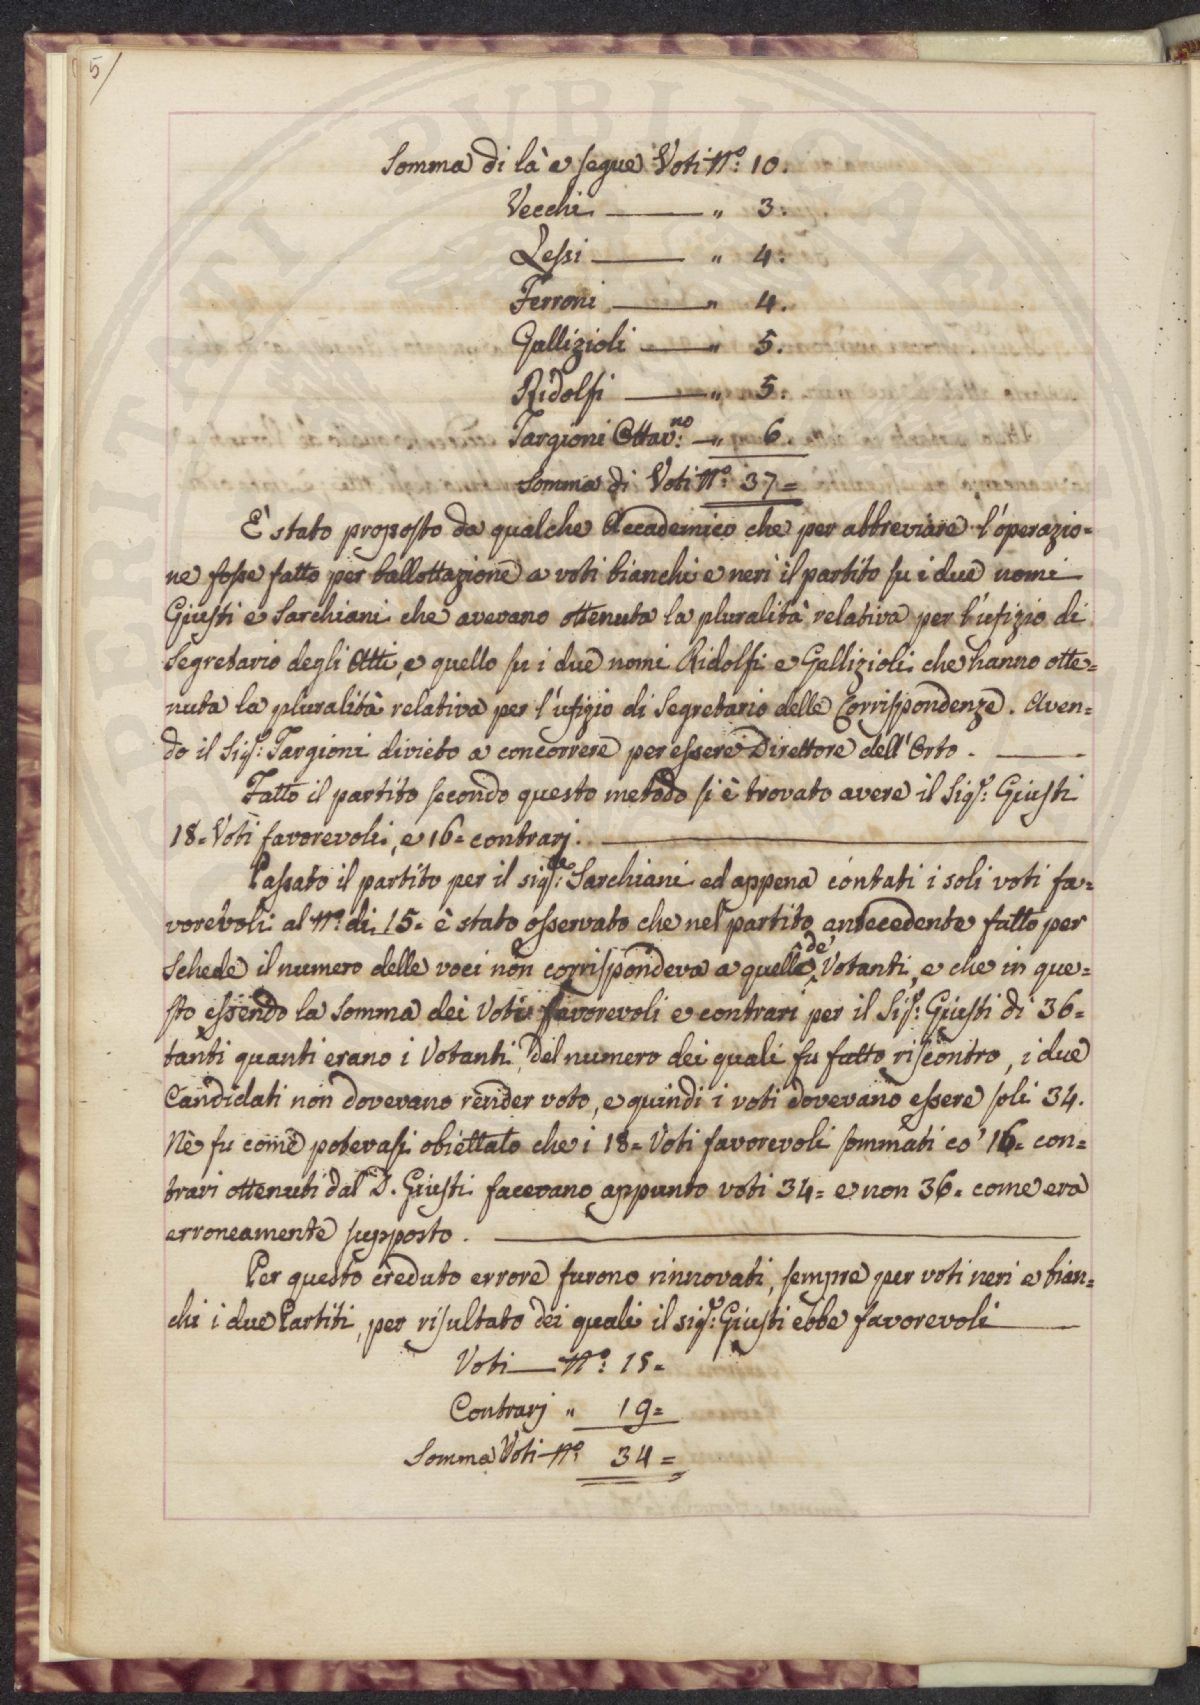 5/
Somma di là e segue Voti N.º 10.
Vecchi — " 3.
Lessi — " 4.
Ferroni — " 4.
Gallizioli — " 5.
Ridolfi — " 5.
Targioni Ottav.no — " 6
Somma di Voti N.º 37=
È stato proposto da qualche Accademico che per abbreviare l'operazio=
ne fosse fatto per ballottazione a voti bianchi e neri il partito su i due nomi
Giusti e Sarchiani che avevano ottenuta la pluralità relativa per l'ufizio di
Segretario degli Atti, e quello su i due nomi Ridolfi e Gallizioli che hanno otte=
nuta la pluralità relativa per l'ufizio di Segretario delle Corrispondenze. Aven=
do il Sig.r Targioni divieto a concorrere per essere Direttore dell'Orto. —
Fatto il partito secondo questo metodo si è trovato avere il Sig.r Giusti
18= Voti favorevoli, e 16= contrarj. —
Passato il partito per il sig.re Sarchiani ed appena contati i soli voti fa=
vorevoli al N.º di 15= è stato osservato che nel partito antecedente fatto per
Schede il numero delle voci non corrispondeva a quello de' Votanti, e che in que=
sto essendo la Somma dei Voti favorevoli e contrari per il Sig.r Giusti di 36=
tanti quanti erano i Votanti, del numero dei quali fu fatto riscontro, i due
Candidati non dovevano render voto, e quindi i voti dovevano essere soli 34.
Nè fu come potevasi obiettato che i 18= Voti favorevoli sommati co' 16= con=
trari ottenuti dal S. Giusti facevano appunto voti 34= e non 36= come era
erroneamente supposto. —
Per questo creduto errore furono rinnovati, sempre per voti neri e bian=
chi i due Partiti, per risultato dei quali il sig.r Giusti ebbe favorevoli —
Voti — N.º 15=
Contrarj " 19=
Somma Voti N.º 34=